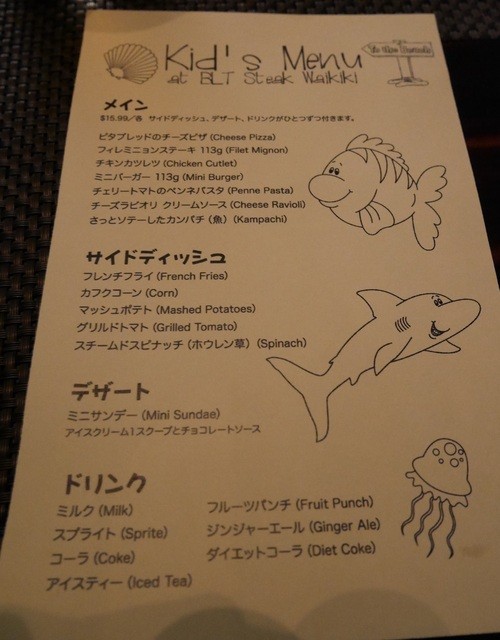 Kid's Menu
at BLT Steak Waikiki
メイン
$15.99／各 サイドディッシュ、デザート、ドリンクがひとつずつ付きます。
ピタブレッドのチーズピザ (Cheese Pizza)
フィレミニョンステーキ 113g (Filet Mignon)
チキンカツレツ (Chicken Cutlet)
ミニバーガー 113g (Mini Burger)
チェリートマトのペンネパスタ (Penne Pasta)
チーズラビオリ クリームソース (Cheese Ravioli)
さっとソテーしたカンパチ（魚）(Kampachi)
サイドディッシュ
フレンチフライ (French Fries)
カフクコーン (Corn)
マッシュポテト (Mashed Potatoes)
グリルドトマト (Grilled Tomato)
スチームドスピナッチ（ホウレン草）(Spinach)
デザート
ミニサンデー (Mini Sundae)
アイスクリーム1スクープとチョコレートソース
ドリンク
ミルク (Milk)
スプライト (Sprite)
コーラ (Coke)
アイスティー (Iced Tea)
フルーツパンチ (Fruit Punch)
ジンジャーエール (Ginger Ale)
ダイエットコーラ (Diet Coke)